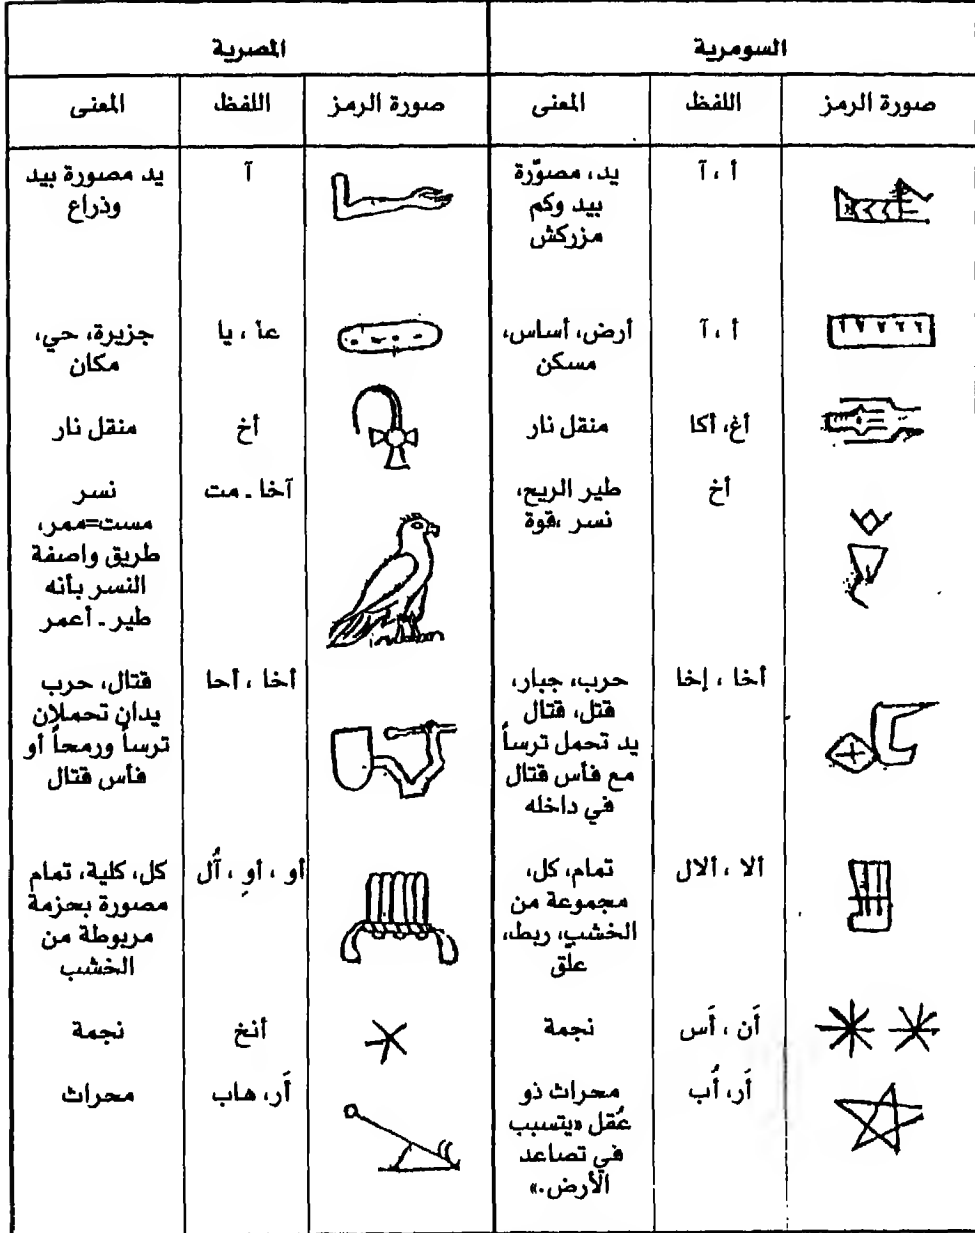 السومرية المصرية
صورة الرمز اللفظ المعنى صورة الرمز اللفظ المعنى
أ ، آ
يد، مصوّرة
بيد وكم
مزركش
آ
يد مصورة بيد
وذراع
أ ، آ
أرض، أساس،
مسكن
عا ، يا
جزيرة، حي،
مكان
أغ، أكا
منقل نار
أخ
منقل نار
أخ
طير الريح،
نسر ،قوة
آخا ـ مت
نسر
مست=ممر،
طريق واصفة
النسر بأنه
طير ـ أعمر
أخا ، إخا
حرب، جبار،
قتل، قتال
يد تحمل ترساً
مع فأس قتال
في داخله
أخا ، أحا
قتال، حرب
يدان تحملان
ترساً ورمحاً أو
فأس قتال
ألا ، ألال
تمام، كل،
مجموعة من
الخشب، ربط،
علّق
أو ، أوِ ، آُل
كل، كلية، تمام
مصورة بحزمة
مربوطة من
الخشب
أَن ، أَس
نجمة
أنخ
نجمة
أَر، أُب
محراث ذو
عُقل «يتسبب
في تصاعد
الأرض.»
أَر، هاب
محراث